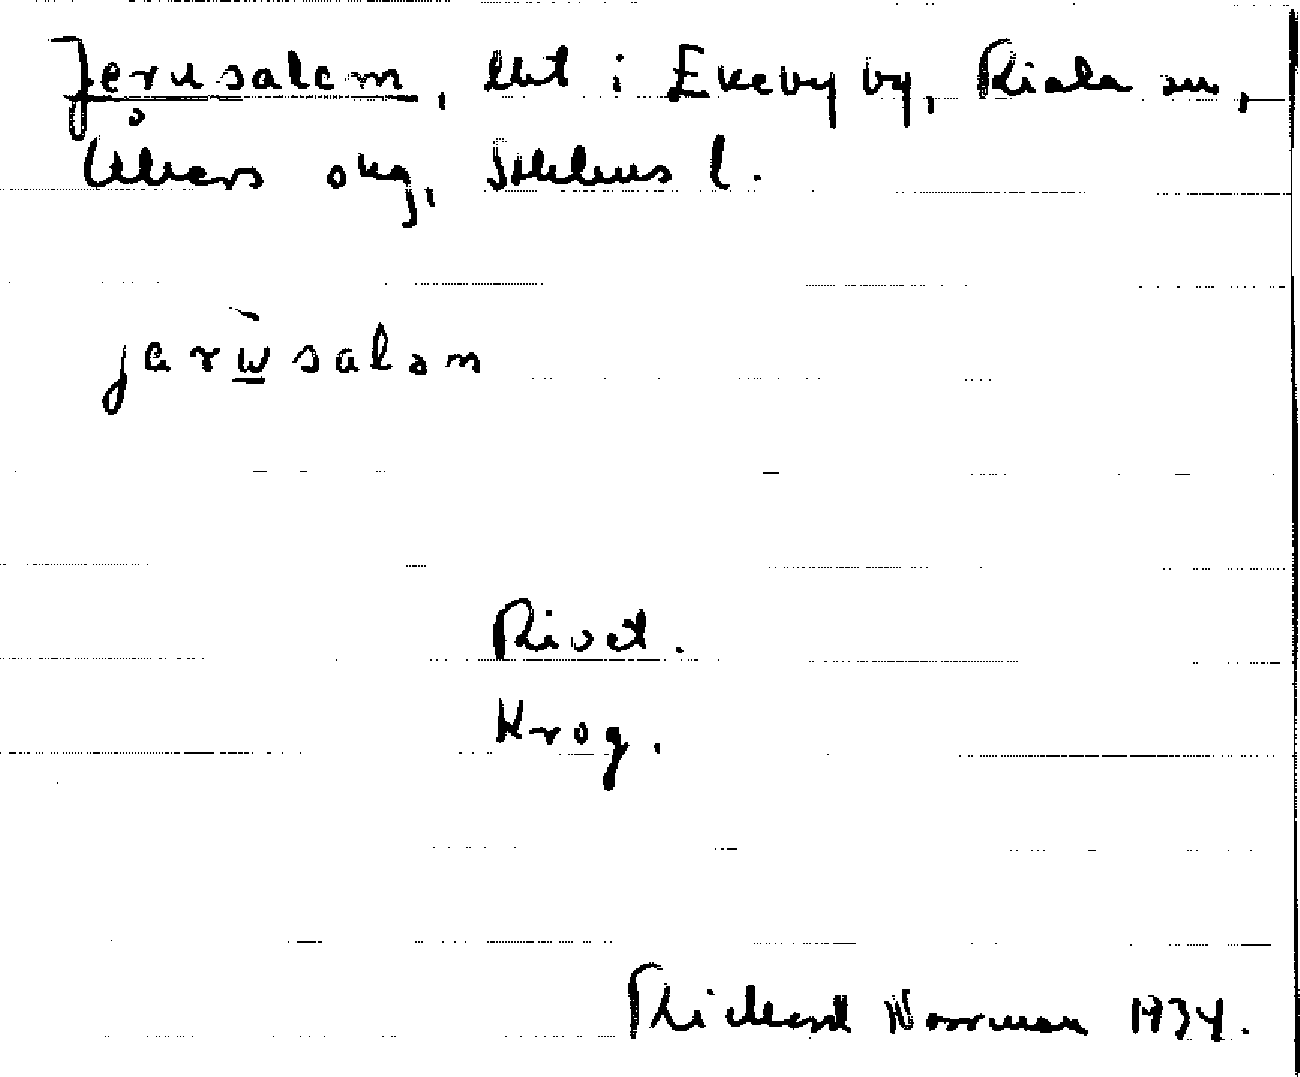 Jerusalem, lht i Ekeby by, Riala sn,
Åkers skg, Sthlms l.
jarùsalam
Rivet.
Krog.
Rickard Norrman 1934.